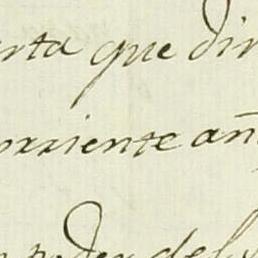 rta que dir
orriente añ
poder del